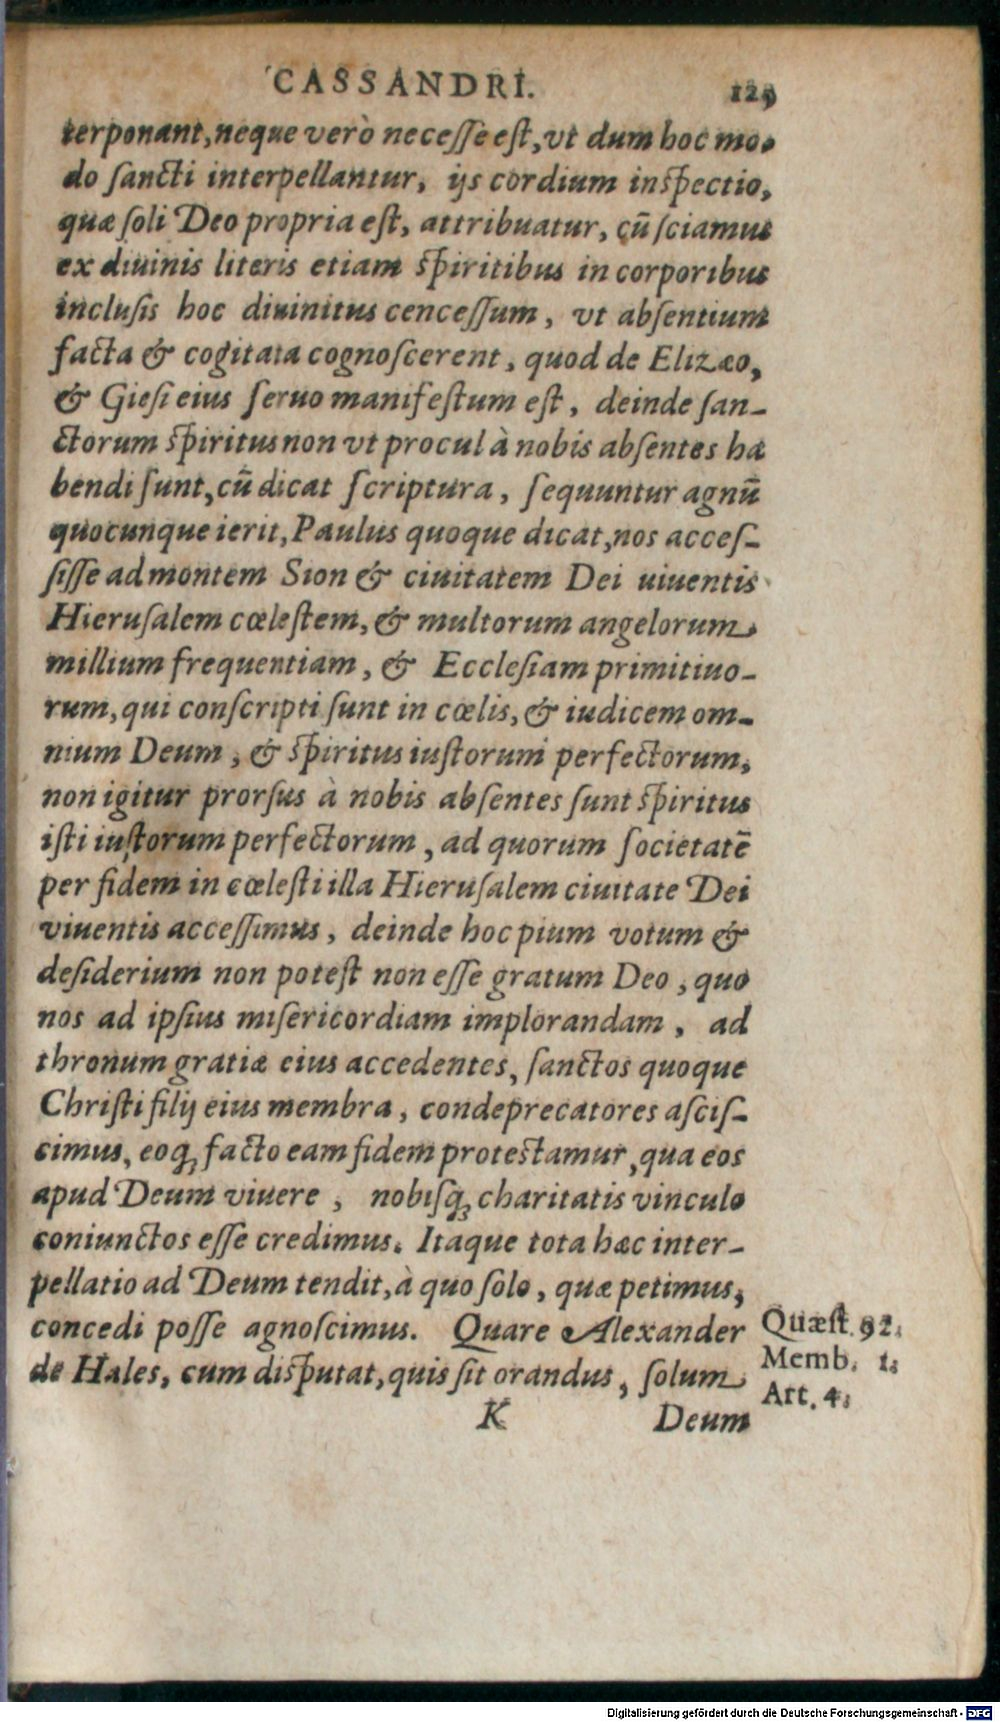 CASSANDRI. 129
terponant, neque verò necesse est, vt dum hoc mo-
do sancti interpellantur, ijs cordium inspectio,
quæ soli Deo propria est, attribuatur, cũ sciamus
ex diuinis literis etiam spiritibus in corporibus
inclusis hoc diuinitus cencessum, vt absentium
facta & cogitata cognoscerent, quod de Elizæo,
& Giesi eius seruo manifestum est, deinde san-
ctorum spiritus non vt procul à nobis absentes ha
bendi sunt, cũ dicat scriptura, sequuntur agnũ
quocunque ierit, Paulus quoque dicat, nos acces-
sisse ad montem Sion & ciuitatem Dei uiuentis
Hierusalem cœlestem, & multorum angelorum
millium frequentiam, & Ecclesiam primitiuo-
rum, qui conscripti sunt in cœlis, & iudicem om-
nium Deum, & spiritus iustorum perfectorum,
non igitur prorsus à nobis absentes sunt spiritus
isti iustorum perfectorum, ad quorum societatẽ
per fidem in cœlesti illa Hierusalem ciuitate Dei
viuentis accessimus, deinde hoc pium votum &
desiderium non potest non esse gratum Deo, quo
nos ad ipsius misericordiam implorandam, ad
thronum gratiæ eius accedentes, sanctos quoque
Christi filij eius membra, condeprecatores ascis-
cimus, eoq; facto eam fidem protestamur, qua eos
apud Deum viuere, nobisq; charitatis vinculo
coniunctos esse credimus. Itaque tota hæc inter-
pellatio ad Deum tendit, à quo solo, quæ petimus,
concedi posse agnoscimus. Quare Alexander
de Hales, cum disputat, quis sit orandus, solum
Quæst. 92.
Memb. 1.
Art. 4.
K Deum
Digitalisierung gefördert durch die Deutsche Forschungsgemeinschaft - DFG